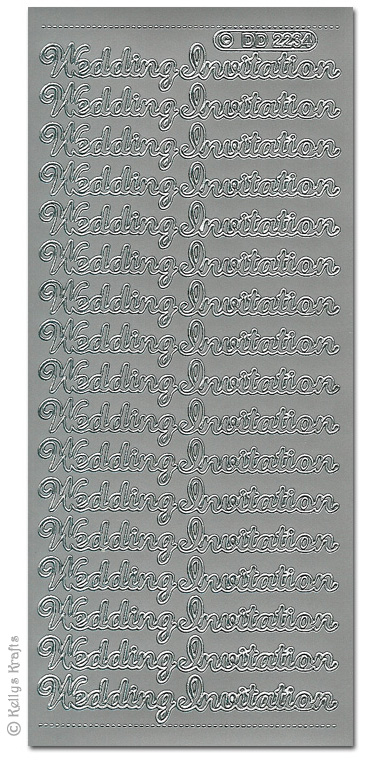 © DD 2234
Wedding Invitation
Wedding Invitation
Wedding Invitation
Wedding Invitation
Wedding Invitation
Wedding Invitation
Wedding Invitation
Wedding Invitation
Wedding Invitation
Wedding Invitation
Wedding Invitation
Wedding Invitation
Wedding Invitation
Wedding Invitation
Wedding Invitation
Wedding Invitation
Wedding Invitation
© Kellys Krafts